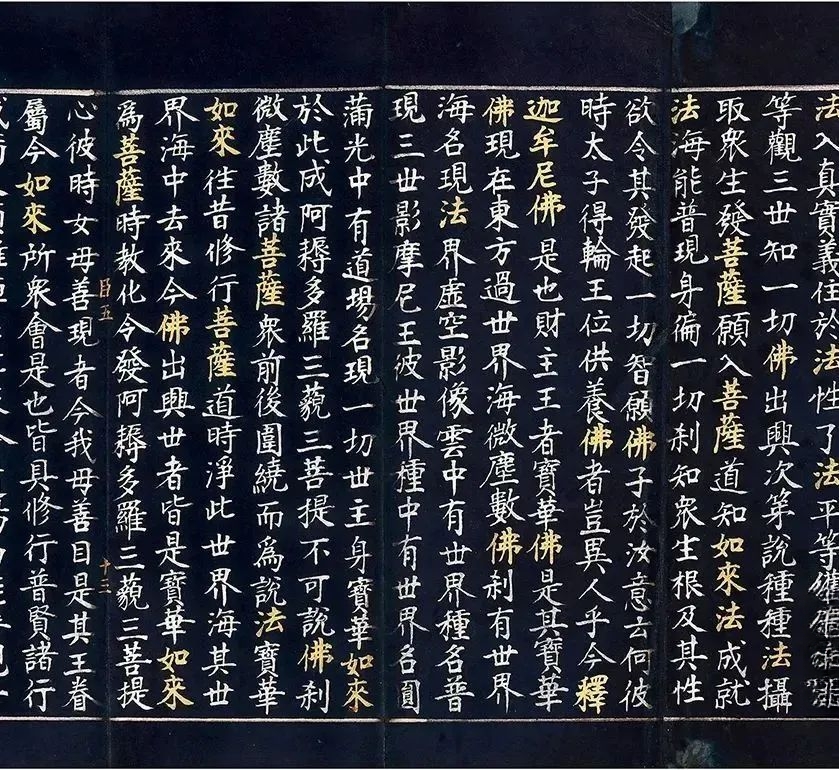 法入真實義住於法性了法平等
等觀三世知一切佛出興次第說種種法攝
取衆生發菩薩願入菩薩道知如來法成就
法海能普現身偏一切刹知衆生根及其性
欲令其發起一切智願佛子於汝意云何彼
時太子得輪王位供養佛者豈異人乎今釋
迦牟尼佛是也財主王者寶華佛是其寶華
佛現在東方過世界海微塵數佛刹有世界
海名現法界虛空影像雲中有世界種名普
現三世影摩尼王彼世界種中有世界名圓
滿光中有道場名現一切世主身寶華如來
於此成阿耨多羅三藐三菩提不可說佛刹
微塵數諸菩薩衆前後圍繞而爲說法寶華
如來往昔修行菩薩道時淨此世界海其世
界海中去來今佛出興世者皆是寶華如來
爲菩薩時教化令發阿耨多羅三藐三菩提
日五 十三
心彼時女母善現者今我母善目是其王眷
屬今如來所衆會是也皆具修行普賢諸行